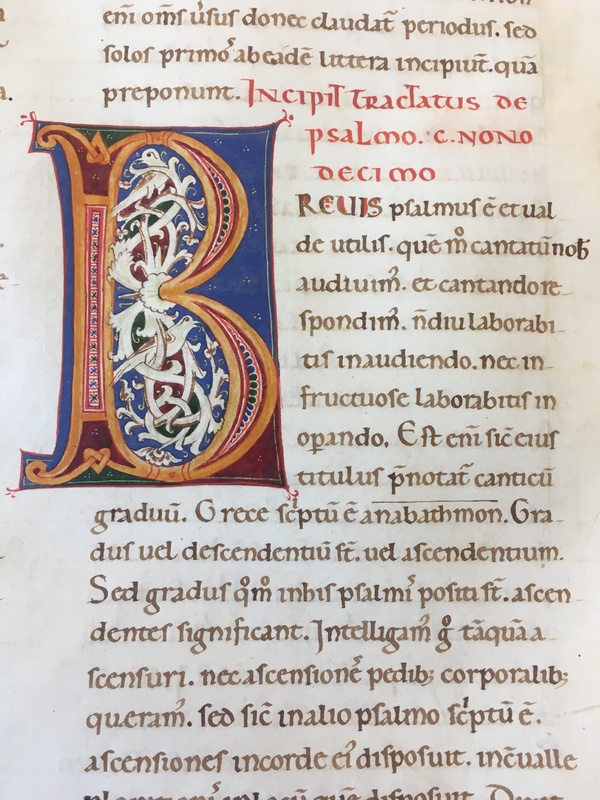 eni oms usus donec claudat periodus. sed
solos primo ab eadē littera incipiūt. quā
preponunt. Incipit tractatus de
psalmo. c. nono
decimo
BREUIS psalmus ē et ual
de utilis. quē m̊ cantatū nob
audiuim̕. et cantando re
spondim̕. n̄ diu laborabi
tis in audiendo. nec in
fructuose laborabitis in
oꝑando. Est eni sic̄ eius
titulus p̄notat̄ canticū
graduū. Grece sc̕ptū ē anabathmon. Gra
dus uel descendentiū st̄. uel ascendentium.
Sed gradus q̊m̊ in his psalmi̕ positi st̄. ascen
dentes significant. Intelligam̕ g̊ tāquā a
scensuri. nec ascensionē pedib; corporalib;
queram̕. sed sic̄ in alio psalmo sc̕ptū ē.
ascensiones in corde ei̕ disposuit. in c̄ualle